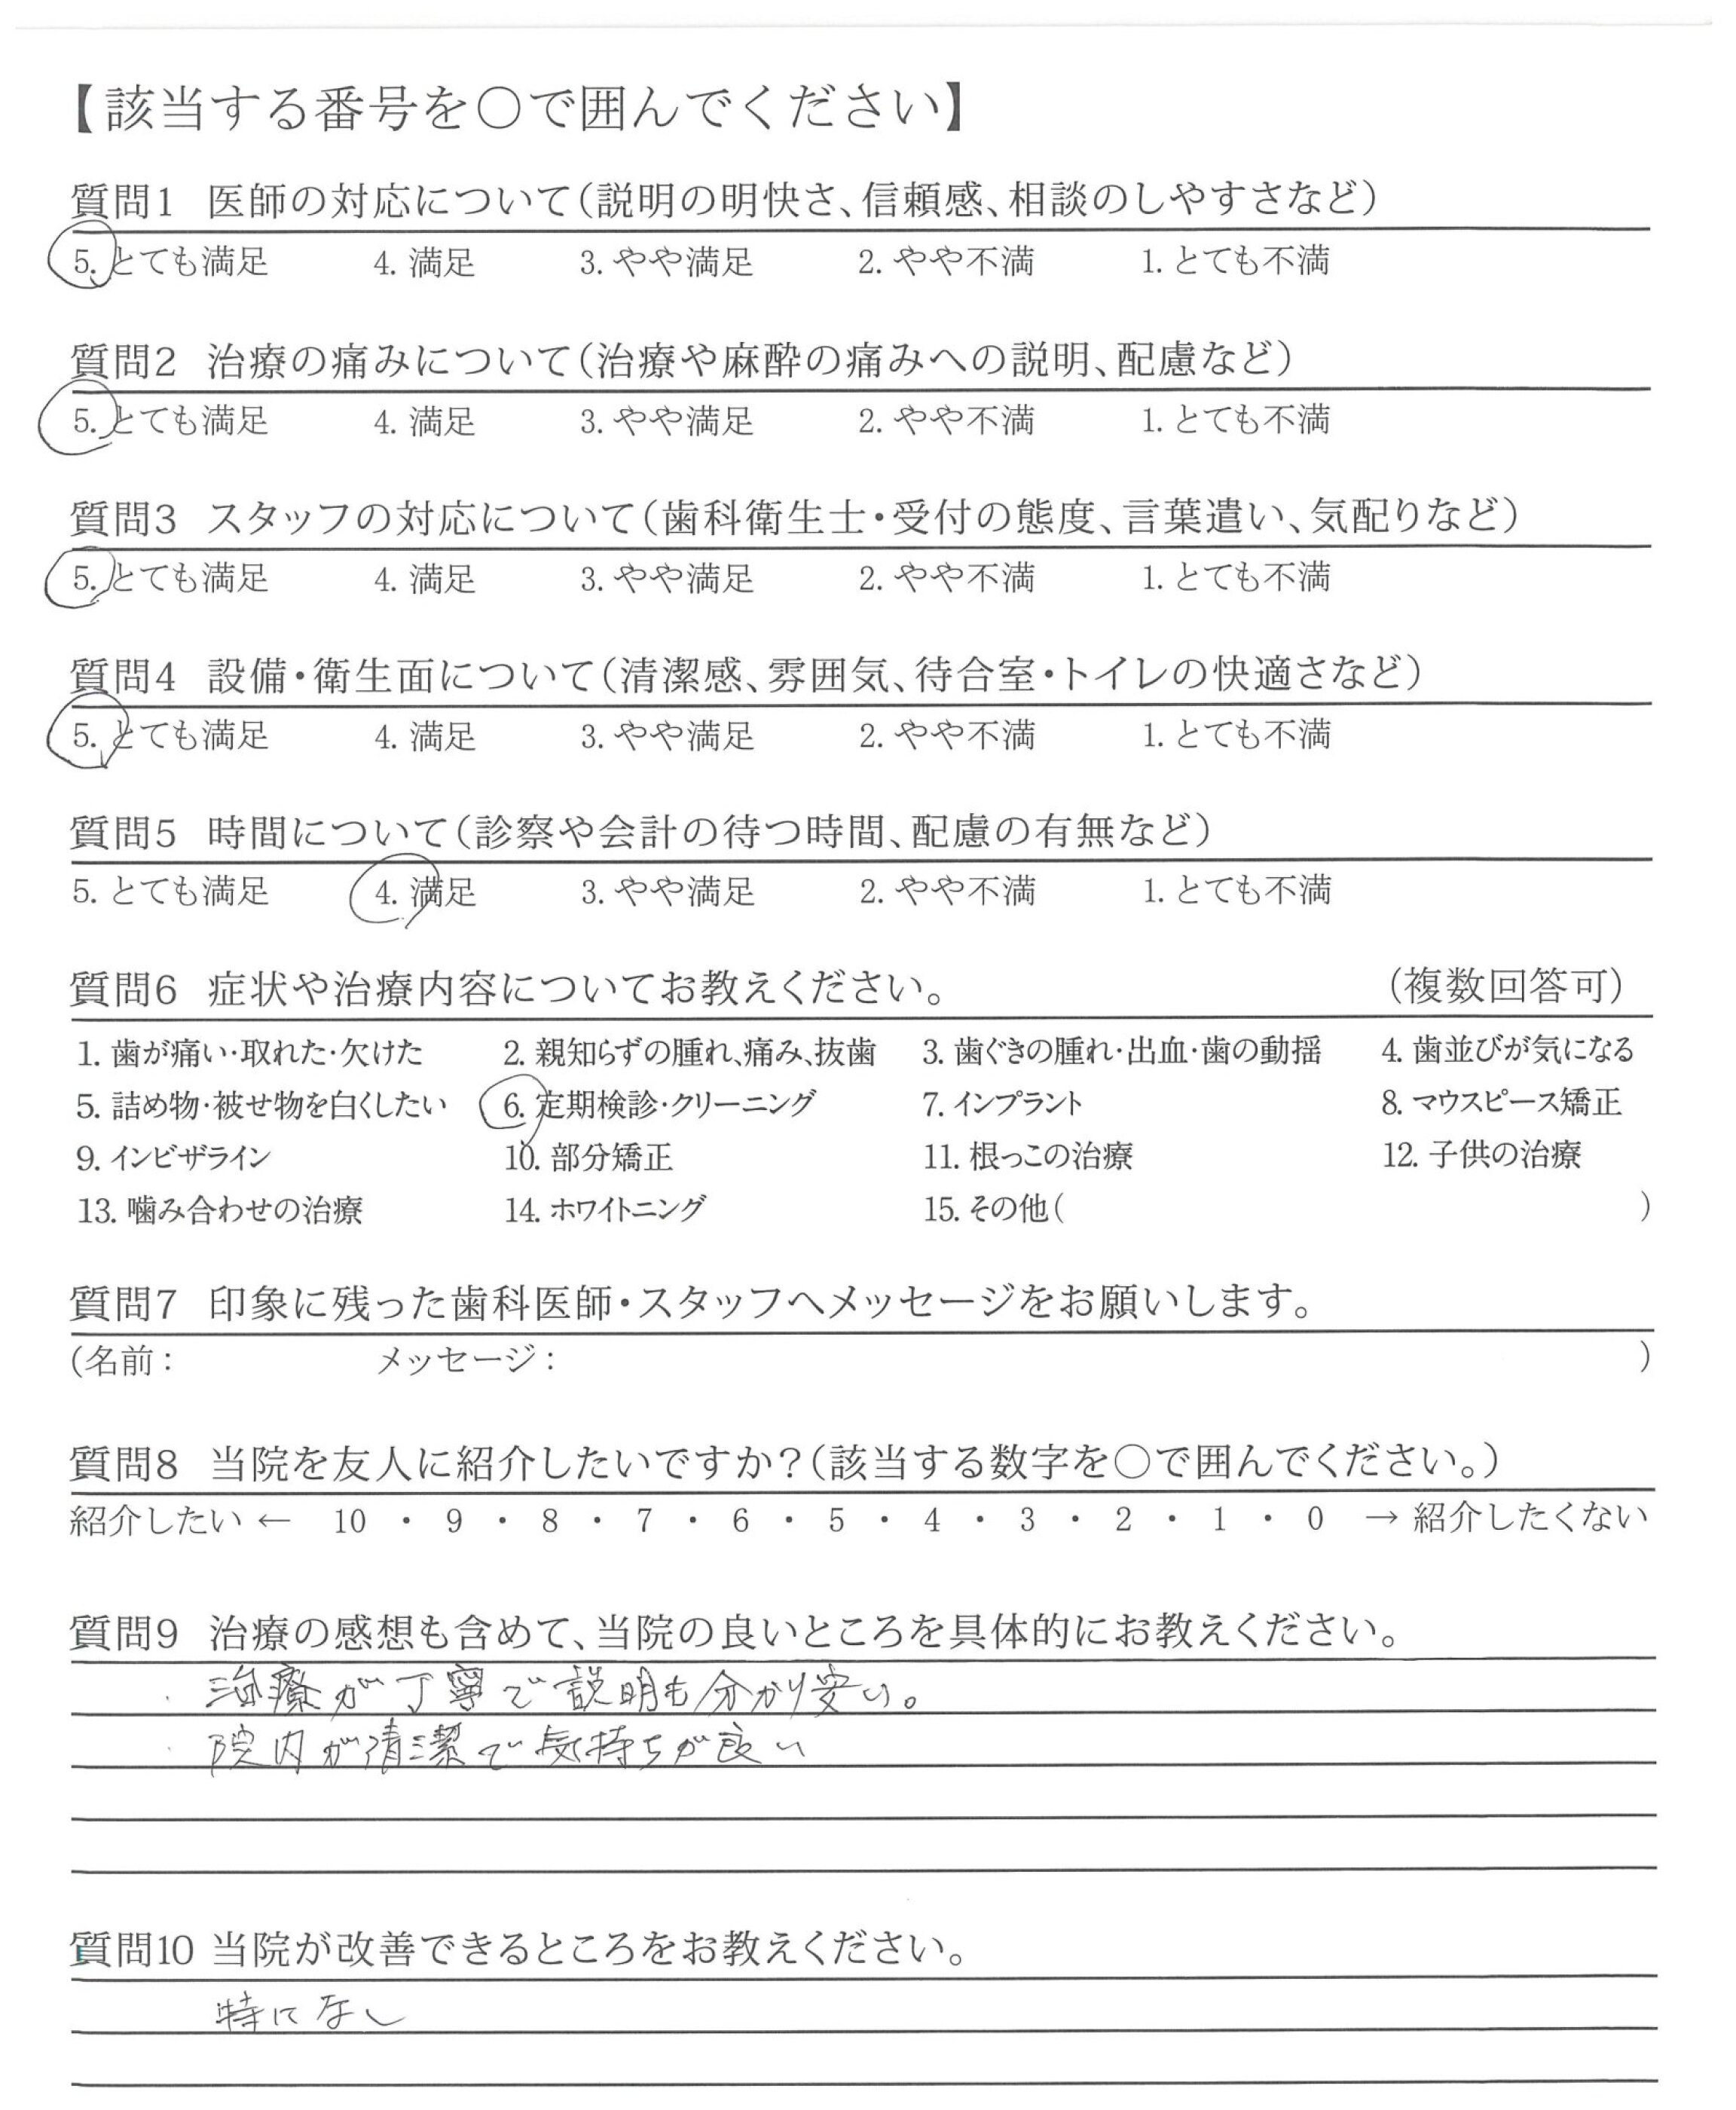 【該当する番号を○で囲んでください】
質問1 医師の対応について(説明の明快さ、信頼感、相談のしやすさなど)
5. とても満足 4. 満足 3. やや満足 2. やや不満 1. とても不満
質問2 治療の痛みについて(治療や麻酔の痛みへの説明、配慮など)
5. とても満足 4. 満足 3. やや満足 2. やや不満 1. とても不満
質問3 スタッフの対応について(歯科衛生士・受付の態度、言葉遣い、気配りなど)
5. とても満足 4. 満足 3. やや満足 2. やや不満 1. とても不満
質問4 設備・衛生面について(清潔感、雰囲気、待合室・トイレの快適さなど)
5. とても満足 4. 満足 3. やや満足 2. やや不満 1. とても不満
質問5 時間について(診察や会計の待つ時間、配慮の有無など)
5. とても満足 4. 満足 3. やや満足 2. やや不満 1. とても不満
質問6 症状や治療内容についてお教えください。 (複数回答可)
1. 歯が痛い・取れた・欠けた 2. 親知らずの腫れ、痛み、抜歯 3. 歯ぐきの腫れ・出血・歯の動揺 4. 歯並びが気になる
5. 詰め物・被せ物を白くしたい 6. 定期検診・クリーニング 7. インプラント 8. マウスピース矯正
9. インビザライン 10. 部分矯正 11. 根っこの治療 12. 子供の治療
13. 噛み合わせの治療 14. ホワイトニング 15. その他( )
質問7 印象に残った歯科医師・スタッフへメッセージをお願いします。
(名前: メッセージ: )
質問8 当院を友人に紹介したいですか?(該当する数字を○で囲んでください。)
紹介したい ← 10 ・ 9 ・ 8 ・ 7 ・ 6 ・ 5 ・ 4 ・ 3 ・ 2 ・ 1 ・ 0 → 紹介したくない
質問9 治療の感想も含めて、当院の良いところを具体的にお教えください。
・ 治療が丁寧で説明も分かり安い。
・ 院内が清潔で気持ちが良い
質問10 当院が改善できるところをお教えください。
特になし